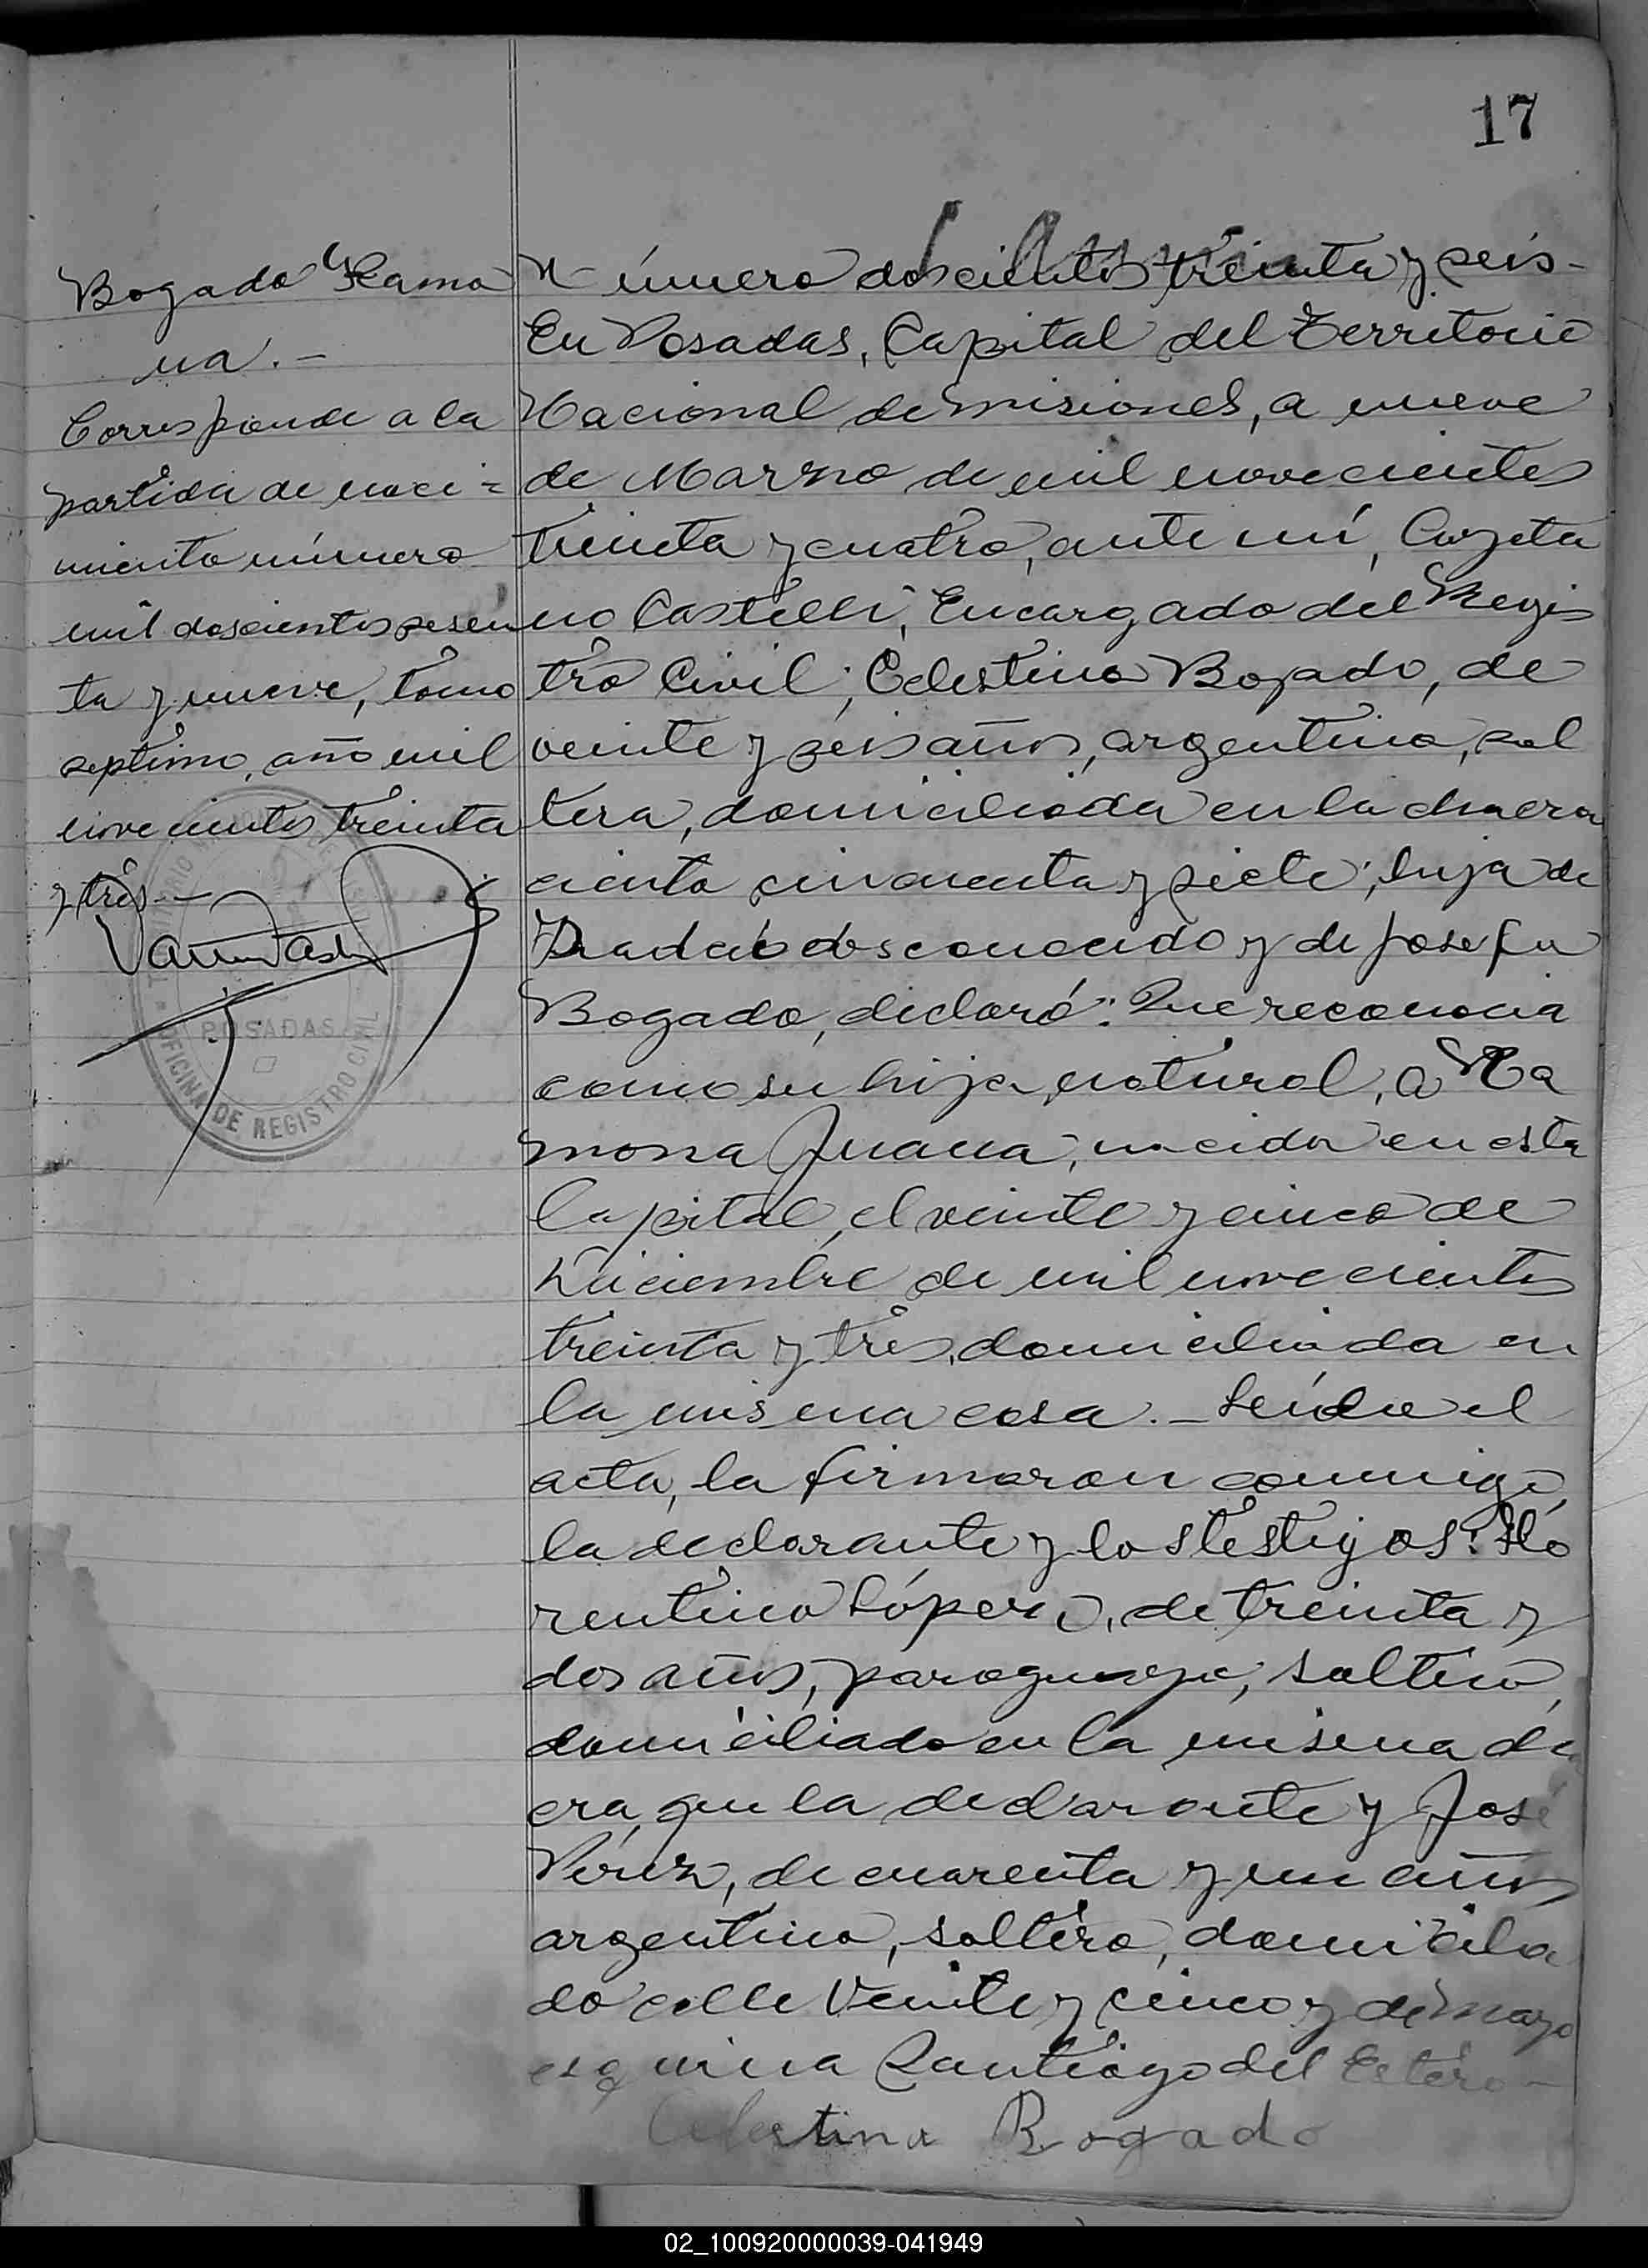 17
Bogado Ramo
na.-
Corresponde a la
partida de naci=
miento número
mil doscientos sesen
ta y nueve, tomo
septimo, año mil
novecientos treinta
y tres.-
POSADAS
OFICINA DE REGISTRO CIVIL
Número doscientos treinta y seis-
En Posadas, Capital del Territorio
Nacional de Misiones, a nueve
de Marzo de mil novecientos
treinta y cuatro, ante mí, Cayeta
no Castelli, Encargado del Regis
tro Civil; Celestina Bogado, de
veinte y seis años, argentina, sol
tera, domiciliada en la chacra
ciento cincuenta y siete; hija de
Padre desconocido y de Josefa
Bogado, declaró: Que reconocia
como su hija natural, a Ra
mona Juana, nacida en esta
Capital, el veinte y cinco de
Diciembre de mil novecientos
treinta y tres, domiciliada en
la misma casa.- Leída el
acta, la firmaron conmigo,
la declarante y los testigos: Flo
rentino López, de treinta y
dos años, paraguayo, soltero,
domiciliado en la misma cha
cra, que la declarante y José
Pérez, de cuarenta y un años
argentino, soltero, domicilia
do calle Veinte y cinco y de Mayo
esquina Santiago del Estero-
Celestina Bogado
02_100920000039-041949